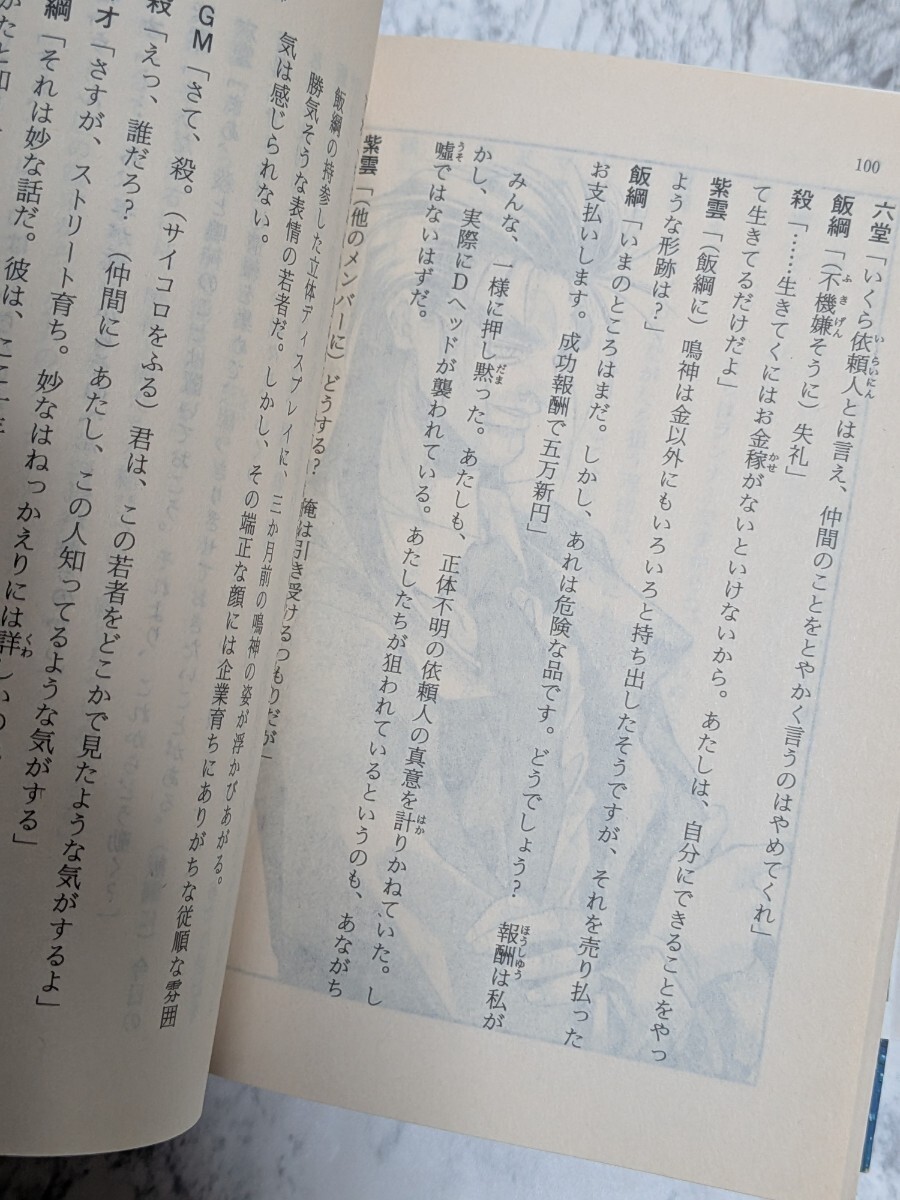 100
六堂「いくら依頼人とは言え、仲間のことをとやかく言うのはやめてくれ」
飯綱「（不機嫌そうに）失礼」
殺「……生きてくにはお金稼がないといけないから。あたしは、自分にできることをやっ
て生きてるだけだよ」
紫雲「（飯綱に）鳴神は金以外にもいろいろと持ち出したそうですが、それを売り払った
ような形跡は？」
飯綱「いまのところはまだ。しかし、あれは危険な品です。どうでしょう？　報酬は私が
お支払いします。成功報酬で五万新円」
みんな、一様に押し黙った。あたしも、正体不明の依頼人の真意を計りかねていた。し
かし、実際にＤヘッドが襲われている。あたしたちが狙われているというのも、あながち
嘘ではないはずだ。
紫雲「（他のメンバーに）どうする？　俺は引き受けるつもりだが」
飯綱の持参した立体ディスプレイに、三か月前の鳴神の姿が浮かびあがる。
勝気そうな表情の若者だ。しかし、その端正な顔には企業育ちにありがちな従順な雰囲
気は感じられない。
GM「さて、殺。（サイコロをふる）君は、この若者をどこかで見たような気がするよ」
殺「えっ、誰だろ？（仲間に）あたし、この人知ってるような気がする」
オ「さすが、ストリート育ち。妙なはねっかえりには詳しいの
綱「それは妙な話だ。彼は、ここ